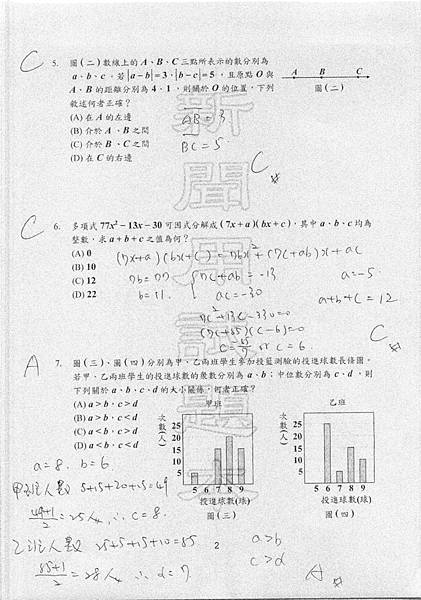 C 5. 圖(二)數線上的A、B、C三點所表示的數分別為
a、b、c。若|a−b|=3,|b−c|=5,且原點O與
A、B的距離分別為4、1,則關於O的位置,下列
敘述何者正確?
A B C
圖(二)
(A) 在A的左邊
(B) 介於A、B之間
(C) 介於B、C之間
(D) 在C的右邊
AB=3
BC=5
C
C 6. 多項式77x²−13x−30可因式分解成(7x+a)(bx+c),其中a、b、c均為
整數,求a+b+c之值為何?
(A) 0
(B) 10
(C) 12
(D) 22
(7x+a)(bx+c)=7bx²+(7c+ab)x+ac
7b=77
b=11.
7c+ab=-13
ac=-30
a=-5
a+b+c=12
7c²+13c-330=0
(7c+55)(c-6)=0
c=6.
C
A 7. 圖(三)、圖(四)分別為甲、乙兩班學生參加投籃測驗的投進球數長條圖。
若甲、乙兩班學生的投進球數的眾數分別為a、b;中位數分別為c、d,則
下列關於a、b、c、d的大小關係,何者正確?
(A) a>b,c>d
(B) a>b,c<d
(C) a<b,c>d
(D) a<b,c<d
甲班
次數(人)
25
20
15
10
5
5 6 7 8 9
投進球數(球)
圖(三)
乙班
次數(人)
25
20
15
10
5
5 6 7 8 9
投進球數(球)
圖(四)
a=8. b=6.
甲班人數 5+15+20+15=49
=25人 ∴c=8.
乙班人數 25+5+15+10=55
=28人 ∴d=7
a>b
c>d
A
2
新聞用試題卷